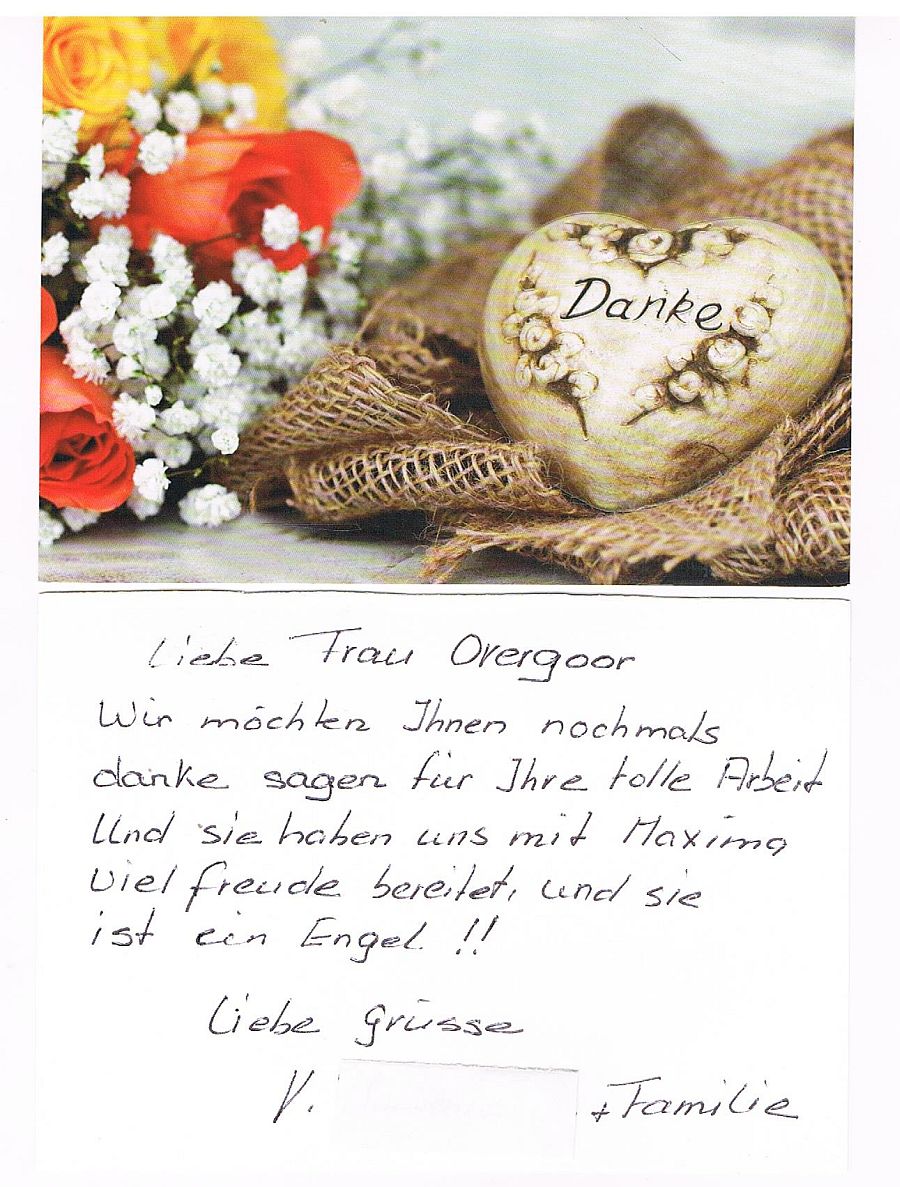 Danke
Liebe Frau Overgoor
Wir möchten Ihnen nochmals
danke sagen für Ihre tolle Arbeit
Und sie haben uns mit Maxima
viel freude bereitet, und sie
ist ein Engel !!
Liebe Grüsse
V. + Familie